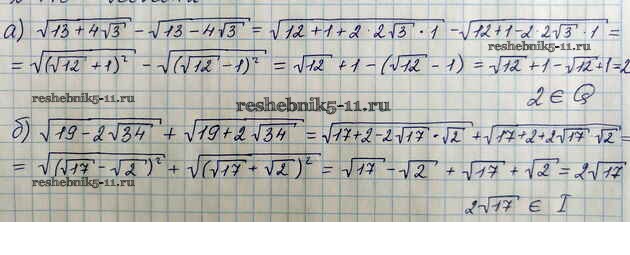 а) √(13+4√3) - √(13-4√3) = √(12+1+2·2√3·1) - √(12+1-2·2√3·1) =
= √((√12+1)²) - √((√12-1)²) = √12+1-(√12-1) = √12+1-√12+1=2
reshebnik5-11.ru
reshebnik5-11.ru
2 ∈ Q
reshebnik5-11.ru
б) √(19-2√34) + √(19+2√34) = √(17+2-2√17·√2) + √(17+2+2√17·√2) =
= √((√17-√2)²) + √((√17+√2)²) = √17-√2+√17+√2=2√17
reshebnik5-11.ru
2√17 ∈ I